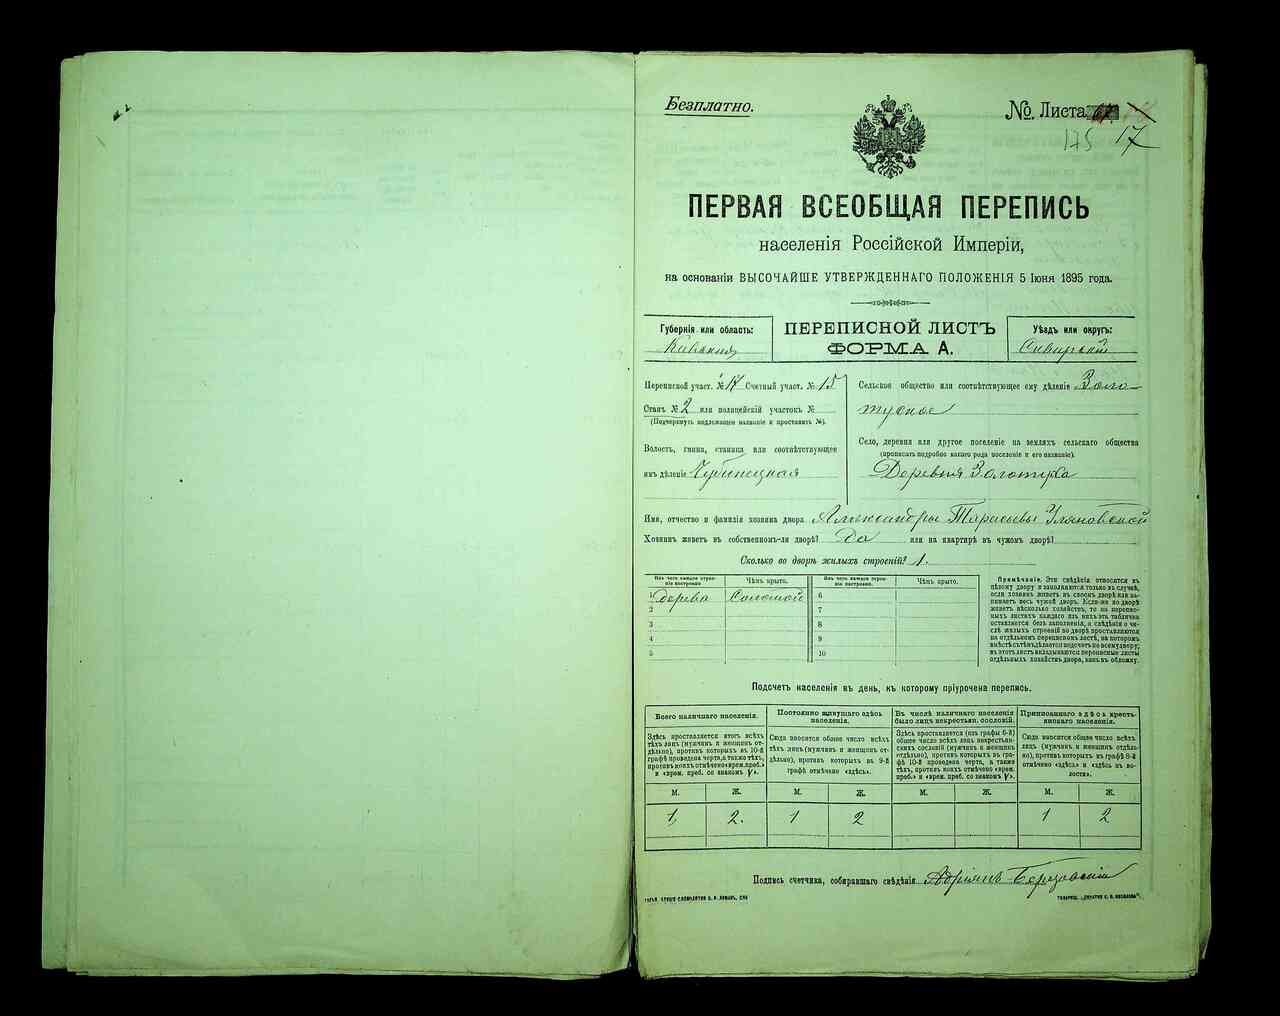 Безплатно.
№ Листа
175 17
ПЕРВАЯ ВСЕОБЩАЯ ПЕРЕПИСЬ
населенія Россійской Имперіи,
на основаніи ВЫСОЧАЙШЕ УТВЕРЖДЕННАГО ПОЛОЖЕНІЯ 5 Іюня 1895 года.
Губернія или область:
Кіевская
ПЕРЕПИСНОЙ ЛИСТЪ
ФОРМА А.
Уѣздъ или округъ:
Переписной участ. № 17 Счетный участ. № 15
Станъ № 2 или полицейскій участокъ №
(Подчеркнуть надлежащее названіе и проставить №).
Волость, гмина, станица или соотвѣтствующее
имъ дѣленіе
Сельское общество или соотвѣтствующее ему дѣленіе Золо-
тухское
Село, деревня или другое поселеніе на земляхъ сельскаго общества
(прописать подробно какого рода поселеніе и его названіе).
Деревня Золотуха
Имя, отчество и фамилія хозяина двора Александры Тарасьевы Уляновской
Хозяинъ живетъ въ собственномъ-ли дворѣ? да или на квартирѣ въ чужомъ дворѣ?
Сколько во дворѣ жилыхъ строеній? 1.
Изъ чего какаго строе-
ніе построено.
Чѣмъ крыто.
Изъ чего какаго строе-
ніе построено.
Чѣмъ крыто.
1 дерева Соломой 6
2 7
3 8
4 9
5 10
Примѣчаніе. Эти свѣдѣнія относятся къ
цѣлому двору и заполняются только въ случаѣ,
если хозяинъ живетъ въ своемъ дворѣ или за-
нимаетъ весь чужой дворъ. Если-же во дворѣ
живетъ нѣсколько хозяйствъ, то на перепис-
ныхъ листахъ каждаго изъ нихъ эта табличка
оставляется безъ заполненія, а свѣдѣнія о чи-
слѣ жилыхъ строеній во дворѣ проставляются
на отдѣльномъ переписномъ листѣ, на которомъ
вмѣстѣ съ тѣмъ дѣлается подсчетъ по всему двору;
въ этотъ листъ вкладываются переписные листы
отдѣльныхъ хозяйствъ двора, какъ въ обложку.
Подсчетъ населенія въ день, къ которому пріурочена перепись.
Всего наличнаго населенія.
Здѣсь проставляется итогъ всѣхъ
тѣхъ лицъ (мужчинъ и женщинъ от-
дѣльно), противъ которыхъ въ 10-й
графѣ проведена черта, а также тѣхъ,
противъ коихъ отмѣчено «врем. преб.»
и «врем. преб. со знакомъ V».
Постоянно живущаго здѣсь
населенія.
Сюда вносится общее число всѣхъ
тѣхъ лицъ (мужчинъ и женщинъ от-
дѣльно), противъ которыхъ въ 9-й
графѣ отмѣчено «здѣсь».
Въ числѣ наличнаго населенія
было лицъ некрестьян. сословій.
Здѣсь проставляется (изъ графы 6-й)
общее число всѣхъ лицъ некрестьян-
скихъ сословій (мужчинъ и женщинъ
отдѣльно), противъ которыхъ въ гра-
фѣ 10-й проведена черта, а также
тѣхъ, противъ коихъ отмѣчено «врем.
преб.» и «врем. преб. со знакомъ V».
Приписаннаго здѣсь кресть-
янскаго населенія.
Сюда вносится общее число всѣхъ
лицъ (мужчинъ и женщинъ отдѣль-
но), противъ которыхъ въ графѣ 8-й
отмѣчено «здѣсь» и «здѣсь въ во-
лости».
М. Ж. М. Ж. М. Ж. М. Ж.
1, 2. 1 2 1 2
Подпись счетчика, собиравшаго свѣдѣнія Адріянъ Березовскій